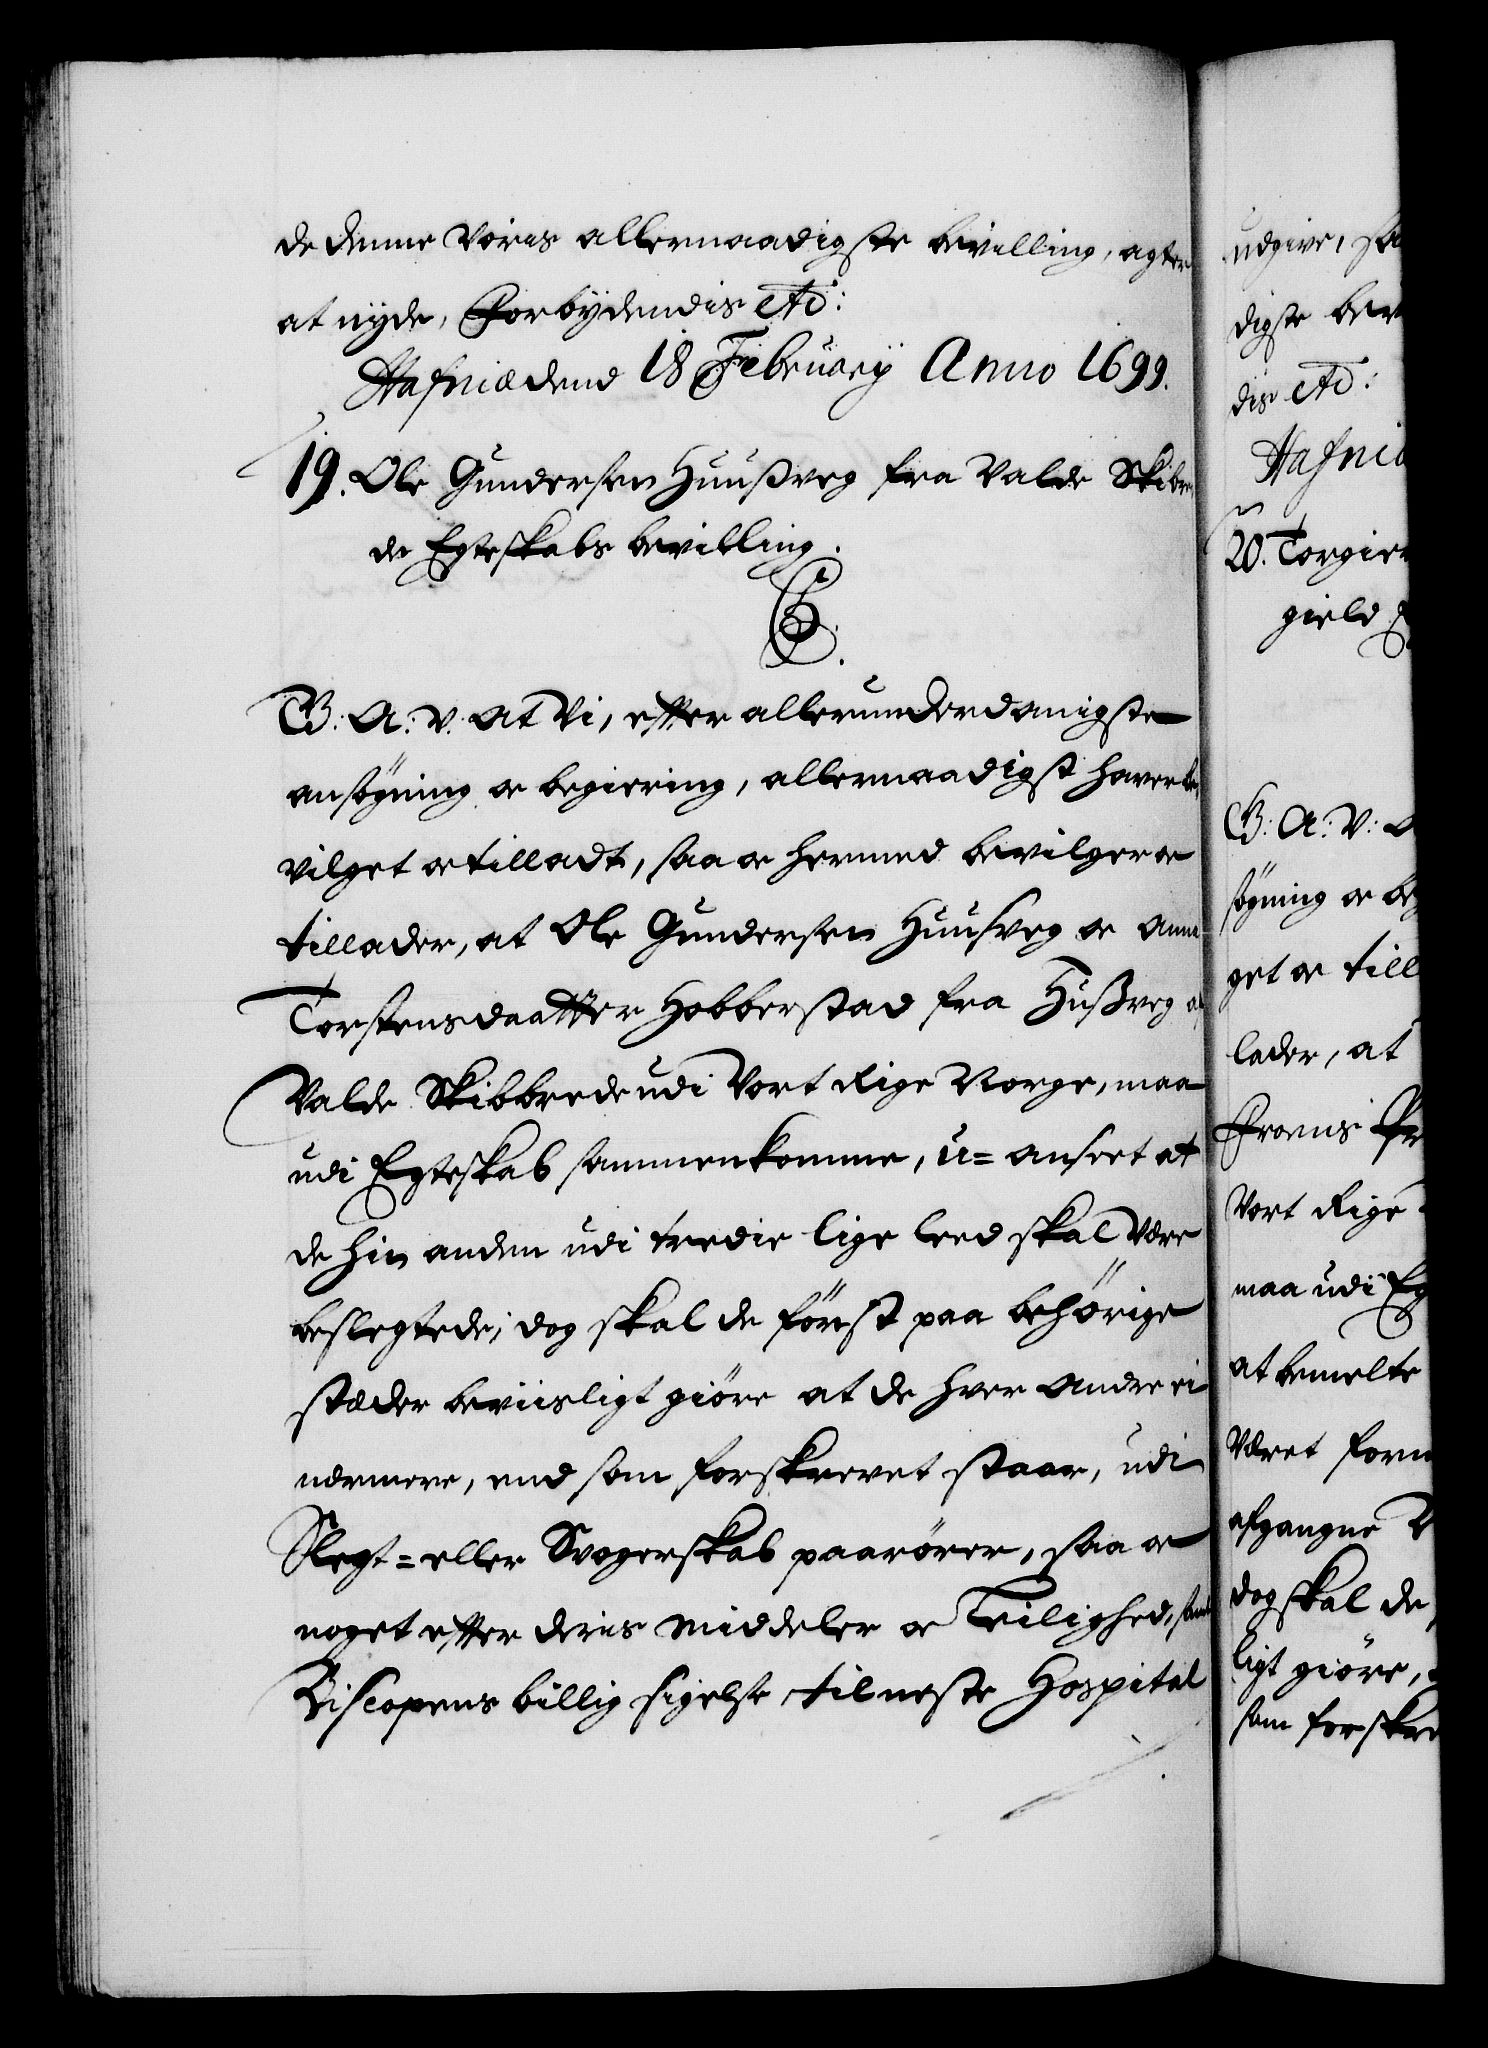 de denne Vores allernaadigste bevilling, agter
at nyde, Forbydendis etc:
Hafniæ dend 18 February Anno 1699.
19. Ole Gundersen Huusveg fra Valde Skibre
de Egteskabs bevilling.
C5.
G: A: V: At Vi, efter allerunderdanigste
ansøgning oc begiering, allernaadigst haver be
vilget oc tilladt, saa oc hermed bevilger oc
tillader, at Ole Gundersen Huusveg oc Anna
Torstensdaatter Hobberstad fra Hussveg af
Valde Skibbrede udi Vort Rige Norge, maa
udi Egteskab sammenkomme, u= anseet at
de hin anden udi tredie lige leed skal være
beslegtede; dog skal de først paa behørige
stæder beviisligt giøre at de hver andre ei
nermere, end som forskrevet staar, udi
Slegt= eller Svogerskab paarører, saa oc
noget efter deris middeler oc Leilighed, samt
Biscopens billig sigelse til neste Hospital
udgive, saa
digste bev
dis etc:
Hafniæ
20. Torgier
gield
G: A: V: A
søgning oc beg
get oc till
lader, at
Froens Pr
Vort Rige
maa udi Eg
at bemelte
Været forn
afgangne
dog skal de
ligt giøre,
som forskre